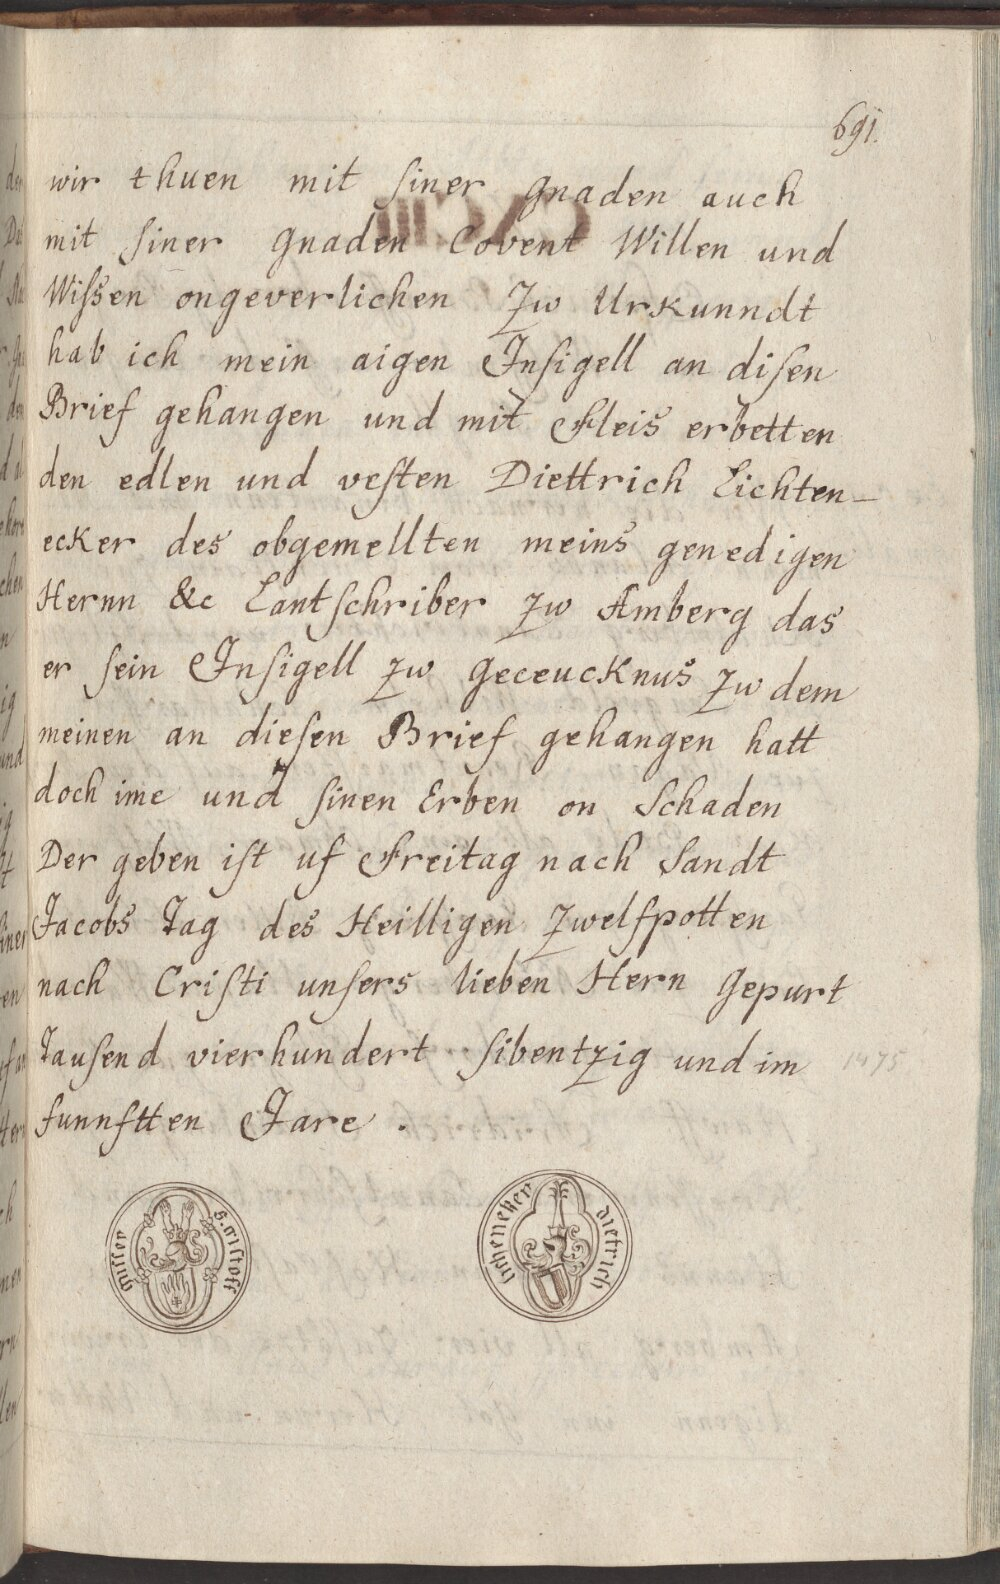 691.
wir thuen mit siner gnaden auch
mit siner gnaden Covent Willen und
Wissen ongeverlichen Zw Urkunndt
hab ich mein aigen Insigell an disen
Brief gehangen und mit Fleis erbetten
den edlen und vesten Diettrich Lichten-
ecker des obgemellten meins genedigen
Hernn &c Lantschriber zw Amberg das
er sein Insigell zw geceucknus zw dem
meinen an diesen Brief gehangen hatt
doch ime und sinen Erben on Schaden
Der geben ist uf Freitag nach Sandt
Jacobs Tag des Heilligen Zwelfpotten
nach Cristi unsers lieben Hern gepurt
Tausend vierhundert sibentzig und im
funnftten Jare.
1475
dietrich